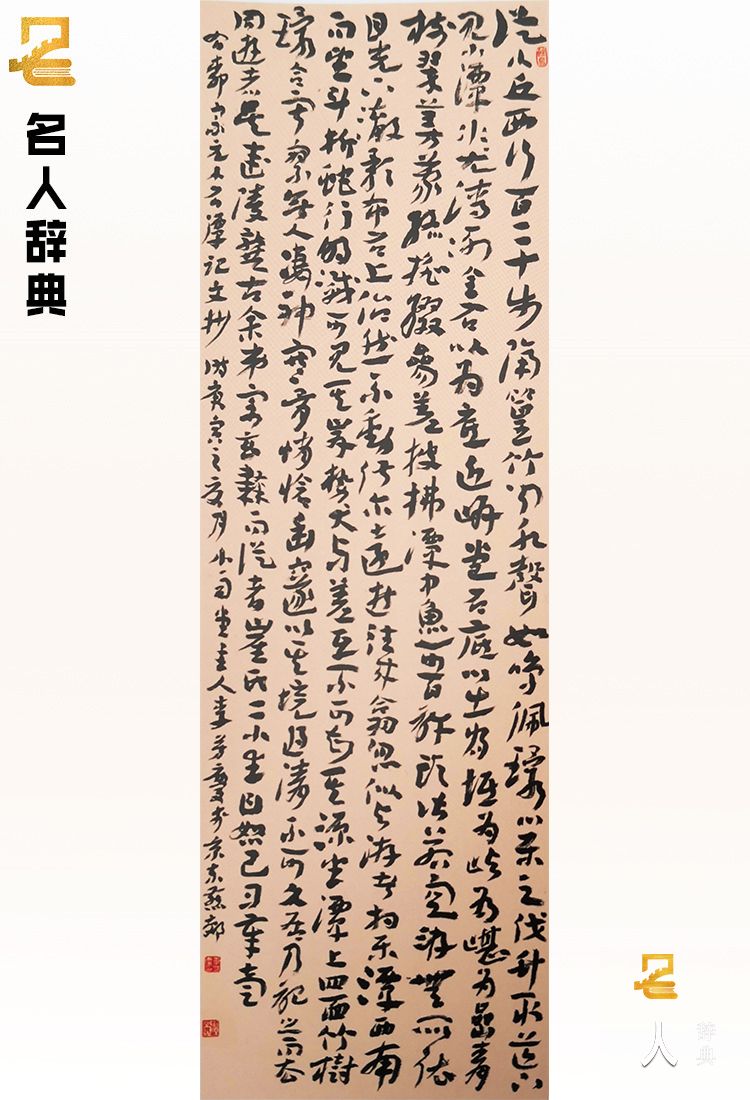 名人辞典
從小丘西行百二十步隔篁竹聞水聲如鳴佩環心樂之伐竹取道下
見小潭水尤清冽全石以為底近岸卷石底以出為坻為嶼為嵁為巖青
樹翠蔓蒙絡搖綴參差披拂潭中魚可百許頭皆若空游無所依
日光下澈影布石上怡然不動俶尔遠逝往來翕忽似與游者相樂潭西南
而望斗折蛇行明滅可見其岸勢犬牙差互不可知其源坐潭上四面竹樹
環合寂寥無人凄神寒骨悄愴幽邃以其境過清不可久居乃記之而去
同遊者吴武陵龔古余弟宗玄隸而從者崔氏二小生曰恕己曰奉壹
宗元小石潭記文抄 時庚寅之夏月 堂主人 於京東燕郊
人
辞典